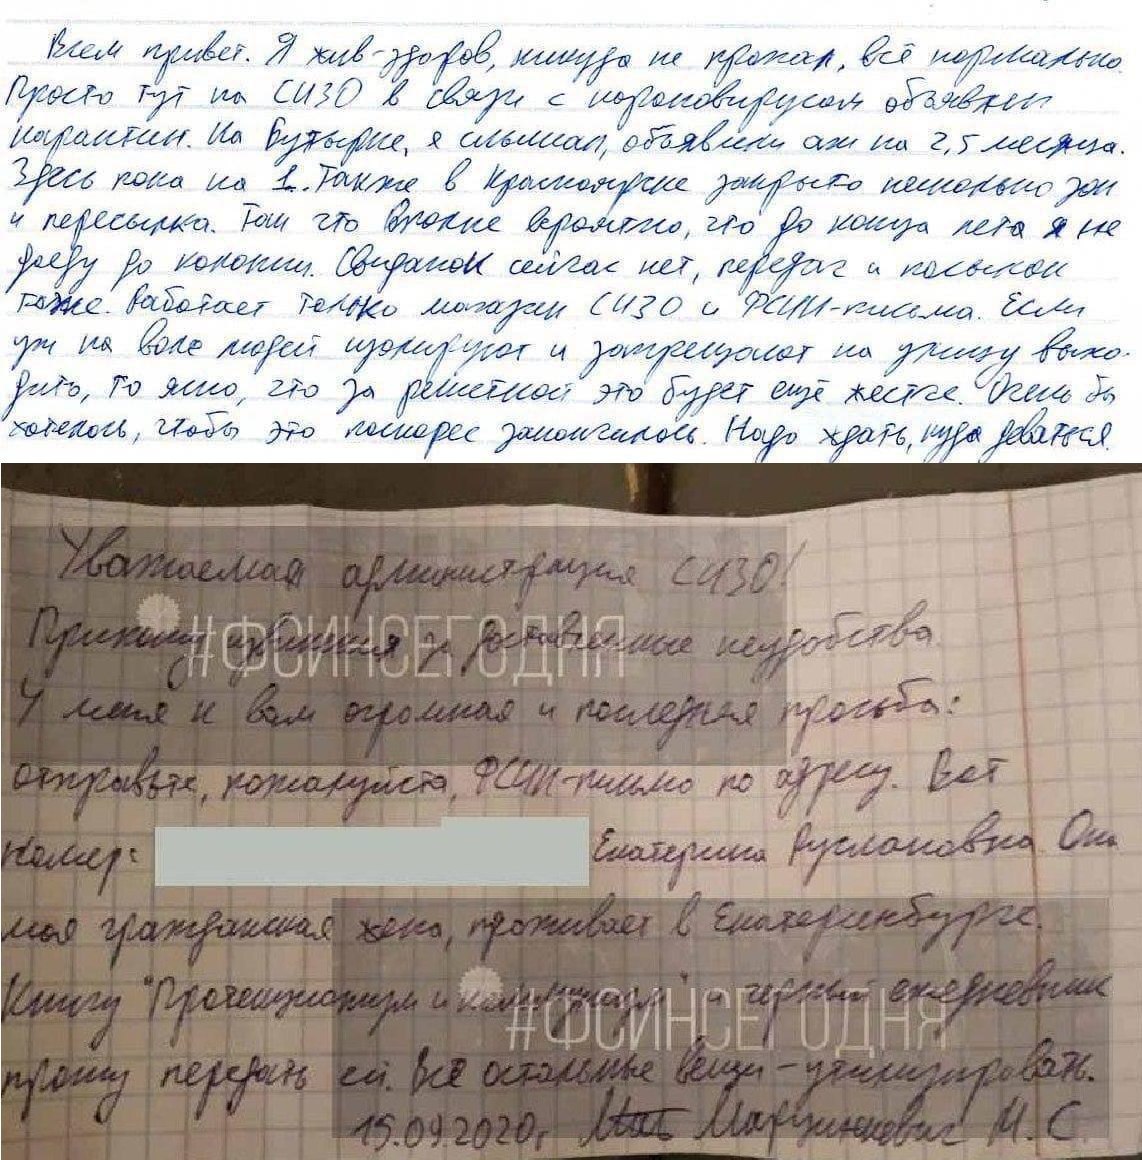 Всем привет. Я жив-здоров, никуда не пропал, всё нормально.
Просто тут на СИЗО в связи с коронавирусом объявлен
карантин. На Бутырке, я слышал, объявили аж на 2,5 месяца.
Здесь пока на 1. Также в Красноярске закрыто несколько зон
и пересылка. Так что вполне вероятно, что до конца лета я не
доеду до колонии. Свиданок сейчас нет, передач и посылок
тоже. Работает только магазин СИЗО и ФСИН-письма. Если
уж на воле людей изолируют и запрещают на улицу выхо-
дить, то ясно, что за решеткой это будет ещё жестче. Очень бы
хотелось, чтобы это поскорее закончилось. Надо ждать, куда деваться.
Уважаемая администрация СИЗО!
Приношу извинения за доставленные неудобства.
#ФСИНСЕГОДНЯ
У меня к вам огромная и последняя просьба:
отправьте, пожалуйста, ФСИН-письмо по адресу. Вот
номер: Екатерина Руслановна. Она
моя гражданская жена, проживает в Екатеринбурге.
Книгу "Протекционизм и коммунизм" и черный ежедневник
#ФСИНСЕГОДНЯ
прошу передать ей. Все остальные вещи - утилизировать.
15.09.2020г Марцинкевич М.С.